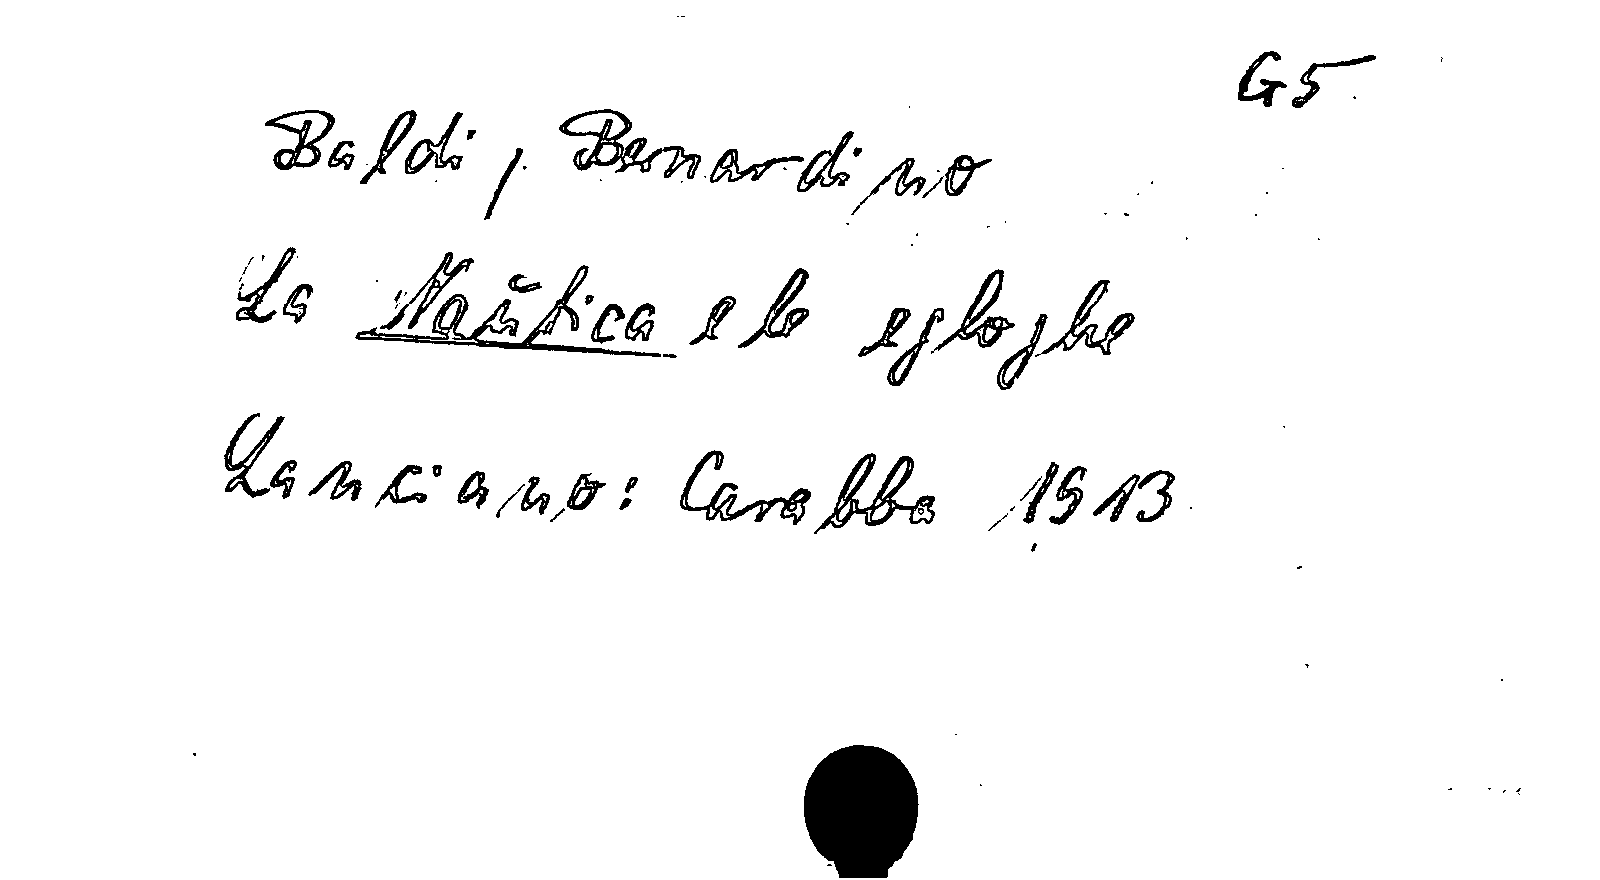 G5
Baldi, Bernardino
La Nautica e le egloghe
Lanciano: Carabba 1913